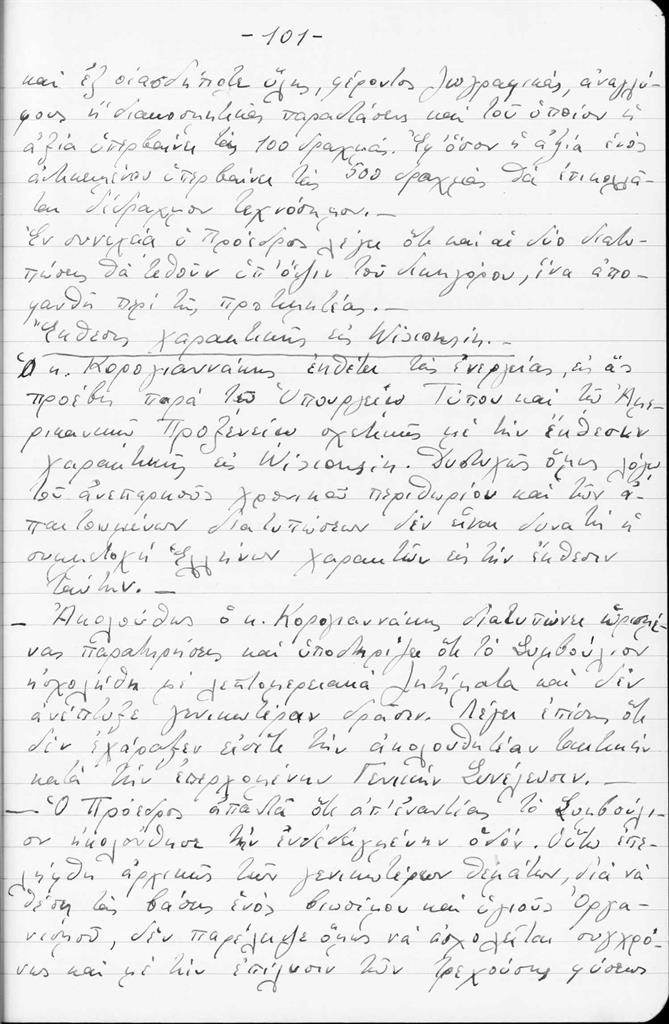 -101-
καὶ ἐξ οἱασδήποτε ὕλης, φέροντος ζωγραφικάς, ἀναγλύ-
φους ἢ διακοσμητικὰς παραστάσεις καὶ τοῦ ὁποίου ἡ
ἀξία ὑπερβαίνει τὰς 100 δραχμάς. Ἐφ' ὅσον ἡ ἀξία ἑνὸς
ἀντικειμένου ὑπερβαίνει τὰς 500 δραχμὰς θὰ ἐπικολλᾶ-
ται δίδραχμον τεχνόσημον.—
Ἐν συνεχείᾳ ὁ Πρόεδρος λέγει ὅτι καὶ αἱ δύο διατυ-
πώσεις θὰ τεθοῦν ὑπ' ὄψιν τοῦ δικηγόρου, ἵνα ἀπο-
φανθῇ περὶ τῆς προτιμητέας.—
Ἔκθεσις χαρακτικῆς εἰς Wisconsin.—
Ὁ κ. Κορογιαννάκης ἐκθέτει τὰς ἐνεργείας, εἰς ἃς
προέβη παρὰ τῷ Ὑπουργείῳ Τύπου καὶ τῷ Ἀμε-
ρικανικῷ Προξενείῳ σχετικῶς μὲ τὴν ἔκθεσιν
χαρακτικῆς εἰς Wisconsin. Δυστυχῶς ὅμως λόγω
τοῦ ἀνεπαρκοῦς χρονικοῦ περιθωρίου καὶ τῶν ἀ-
παιτουμένων διατυπώσεων δὲν εἶναι δυνατὴ ἡ
συμμετοχὴ Ἑλλήνων χαρακτῶν εἰς τὴν ἔκθεσιν
ταύτην.—
— Ἀκολούθως ὁ κ. Κορογιαννάκης διατυπώνει ὡρισμέ-
νας παρατηρήσεις καὶ ὑποστηρίζει ὅτι τὸ Συμβούλιον
ἠσχολήθη μὲ λεπτομερειακὰ ζητήματα καὶ δὲν
ἀνέπτυξε γενικωτέραν δρᾶσιν. Λέγει ἐπίσης ὅτι
δὲν ἐχάραξεν εἰσέτι τὴν ἀκολουθητέαν τακτικὴν
κατὰ τὴν ἐπερχομένην Γενικὴν Συνέλευσιν.—
— Ὁ Πρόεδρος ἀπαντᾶ ὅτι ἀπ' ἐναντίας τὸ Συμβούλι-
ον ἠκολούθησε τὴν ἐνδεδειγμένην ὁδόν. Οὕτω ἐπε-
λήφθη ἀρχικῶς τῶν γενικωτέρων θεμάτων, διὰ νὰ
θέσῃ τὰς βάσεις ἑνὸς βιωσίμου καὶ ὑγιοῦς Ὀργα-
νισμοῦ, δὲν παρέλειψε ὅμως νὰ ἀσχολεῖται συγχρό-
νως καὶ μὲ τὴν ἐπίλυσιν τῶν τρεχούσης φύσεως